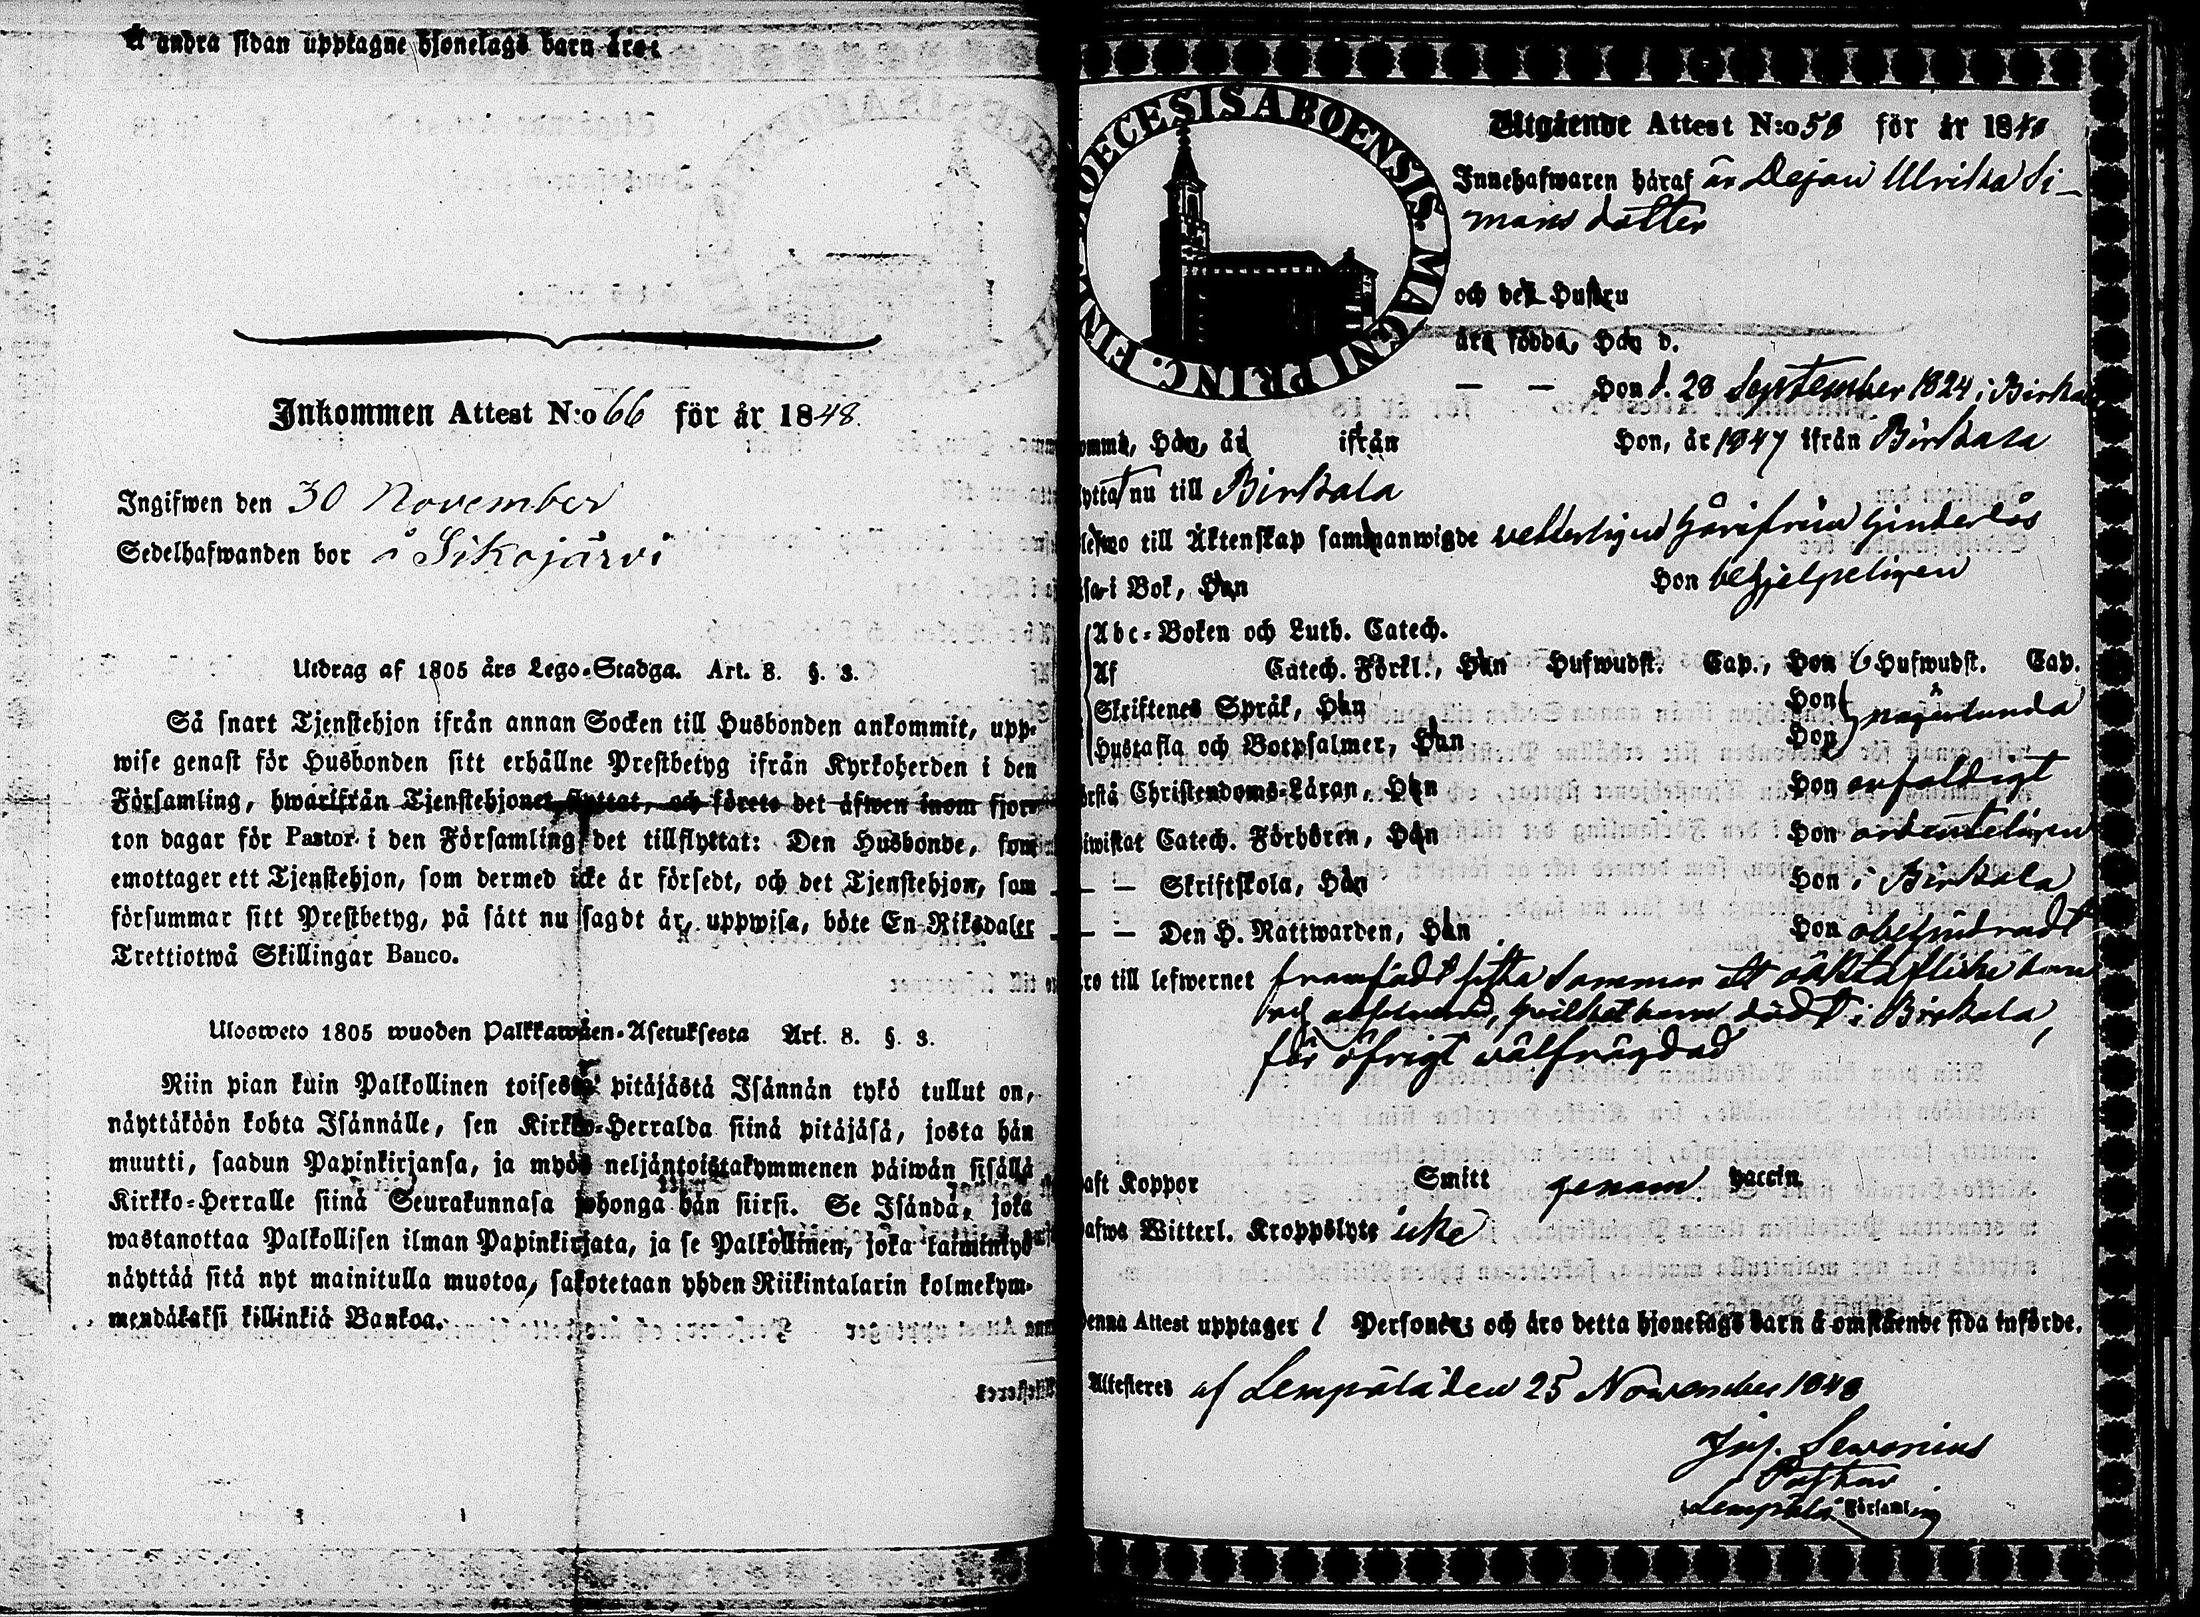 Å andra sidan upptagne hjonelags barn äro:
Inkommen Attest N:o 66 för år 1848.
Ingifwen den 30 November
Sedelhafwanden bor å Sikojärvi
Utdrag af 1805 års Lego-Stadga. Art. 8. §. 3.
Så snart Tjenstehjon ifrån annan Socken till Husbonden ankommit, upp-
wise genast för Husbonden sitt erhållne Prestbetyg ifrån Kyrkoherden i den
Församling, hwarifrån Tjenstehjonet flyttat, och förete det äfwen inom fjor-
ton dagar för Pastor i den Församling det tillflyttat: Den Husbonde, som
emottager ett Tjenstehjon, som dermed icke är försedt, och det Tjenstehjon, som
försummar sitt Prestbetyg, på sätt nu sagdt är, uppwisa, böte En Riksdaler
Trettiotwå Skillingar Banco.
Ulosweto 1805 wuoden Palkkawäen-Asetuksesta Art. 8. §. 3.
Niin pian kuin Palkollinen toisesta pitäjästä Isännän tykö tullut on,
näyttäköön kohta Isännälle, sen Kirkko-Herralda siinä pitäjäsä, josta hän
muutti, saadun Papinkirjansa, ja myös neljäntoistakymmenen päiwän sisällä
Kirkko-Herralle siinä Seurakunnasa johonga hän siirsi. Se Isändä, joka
wastanottaa Palkollisen ilman Papinkirjata, ja se Palkollinen, joka laiminlyö
näyttää sitä nyt mainitulla muotoa, sakotetaan yhden Riikintalarin kolmekym-
mendäkaksi killinkiä Bankoa.
DIOECESIS ABOENSIS. MAGNI PRINC. FINL.
Utgående Attest N:o 58 för år 1848
Innehafwaren häraf är Dejan Ulrika Si-
mons dotter
och dess Hustru
äro födde, Han d.
— — Hon d. 28 September 1824 i Birkala
omma, Han, år ifrån Hon, år 1847 ifrån Birkala
yttat nu till Birkala
lefwo till Äktenskap sammanwigde vetterligen hjonefri hinderlös
äsa i Bok, Han Hon behjelpeligen
Abc-Boken och Luth. Catech.
Af Catech. Förkl., Han Hufwudst. Cap., Hon 6 Hufwudst. Cap.
Skriftenes Språk, Han Hon någorlunda
Hustafla och Botpsalmer, Han Hon
örstå Christendoms-Läran, Han Hon enfaldigt
iwistat Catech. Förhören, Han Hon ordenteligen
— — Skriftskola, Han Hon i Birkala
— — Den H. Nattwarden, Han Hon obehindradt
äro till lefwernet framfödt sista Sommar ett oäkta flicke barn
och, hvilket barn dödt i Birkala,
för öfrigt välfrägdad
aft Koppor Smitt genom vaccin.
afwa Witterl. Kroppslyte icke
Denna Attest upptager 1 Personer och äro detta hjonelags barn å omstående sida införde.
Attesteres af Lempälä den 25 November 1848
Jos. Sevonius
Pastor
i Lempälä Församling